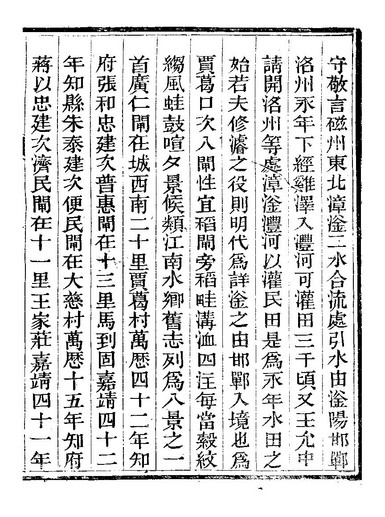 守敬言磁州東北漳滏二水合流處引水由滏陽邯鄲
洛州永年下經雞澤入灃河可灌田三千頃又王允中
請開洛州等處漳滏灃河以灌民田是爲永年水田之
始若夫修濬之役則明代爲詳滏之由邯鄲入境也爲
賈葛口次八閘性宜稻閘旁稻畦溝洫四注每當縠紋
縐風蛙鼓喧夕景候類江南水鄉舊志列爲八景之一
首廣仁閘在城西南二十里賈葛村萬曆四十二年知
府張和忠建次普惠閘在十三里馬到固嘉靖四十二
年知縣朱泰建次便民閘在大慈村萬曆十五年知府
蔣以忠建次濟民閘在十一里王家莊嘉靖四十一年